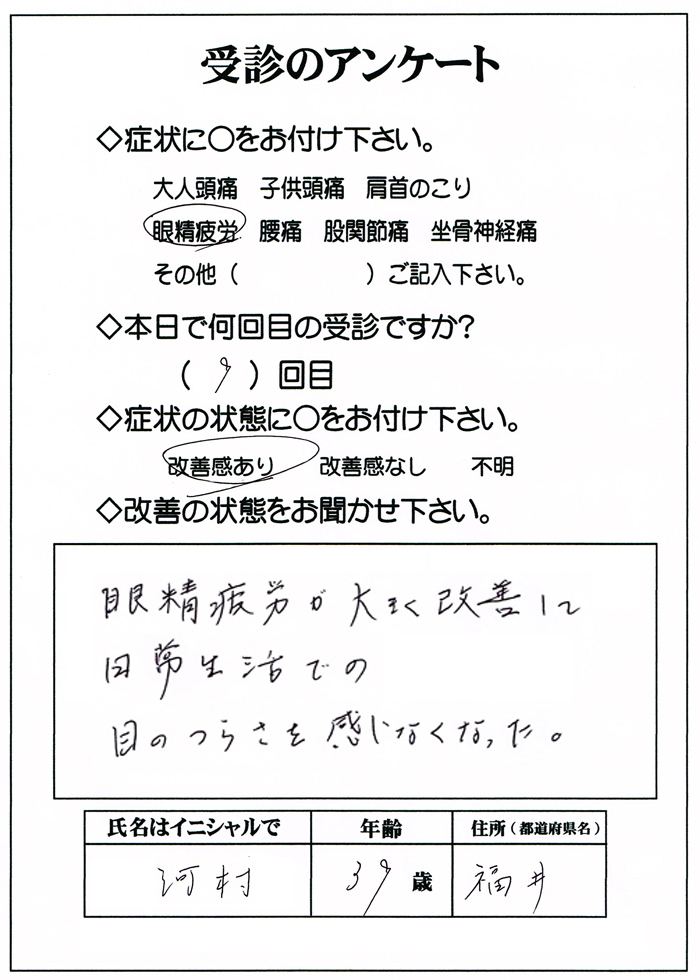 受診のアンケート
◇症状に〇をお付け下さい。
大人頭痛 子供頭痛 肩首のこり
眼精疲労 腰痛 股関節痛 坐骨神経痛
その他( )ご記入下さい。
◇本日で何回目の受診ですか?
( 9 )回目
◇症状の状態に〇をお付け下さい。
改善感あり 改善感なし 不明
◇改善の状態をお聞かせ下さい。
眼精疲労が大きく改善して
日常生活での
目のつらさを感じなくなった。
氏名はイニシャルで 年齢 住所(都道府県名)
河村 39歳 福井